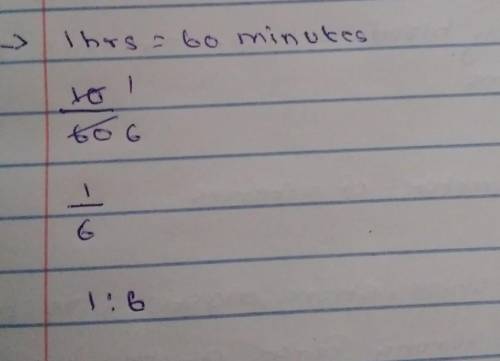 → 1hrs = 60 minutes
10 1
60 6
1
6
1 : 6